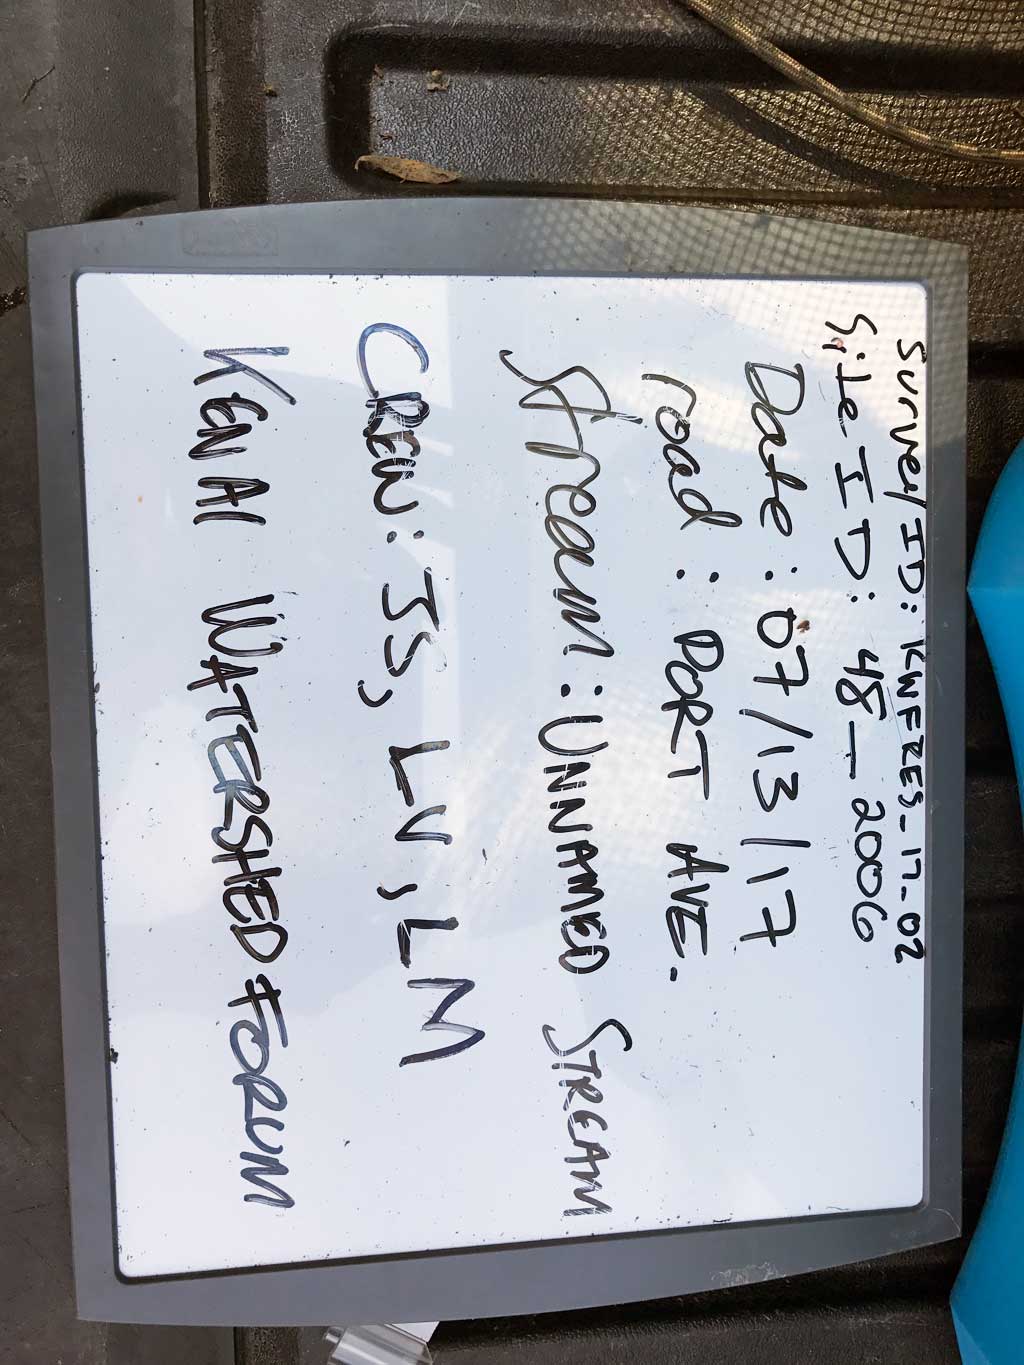 Survey ID: KWFRES_17_02
Site ID: 48_2006
Date: 07/13/17
road: PORT AVE.
Stream: UNNAMED STREAM
CREW: JS, LV, LM
KENAI WATERSHED FORUM